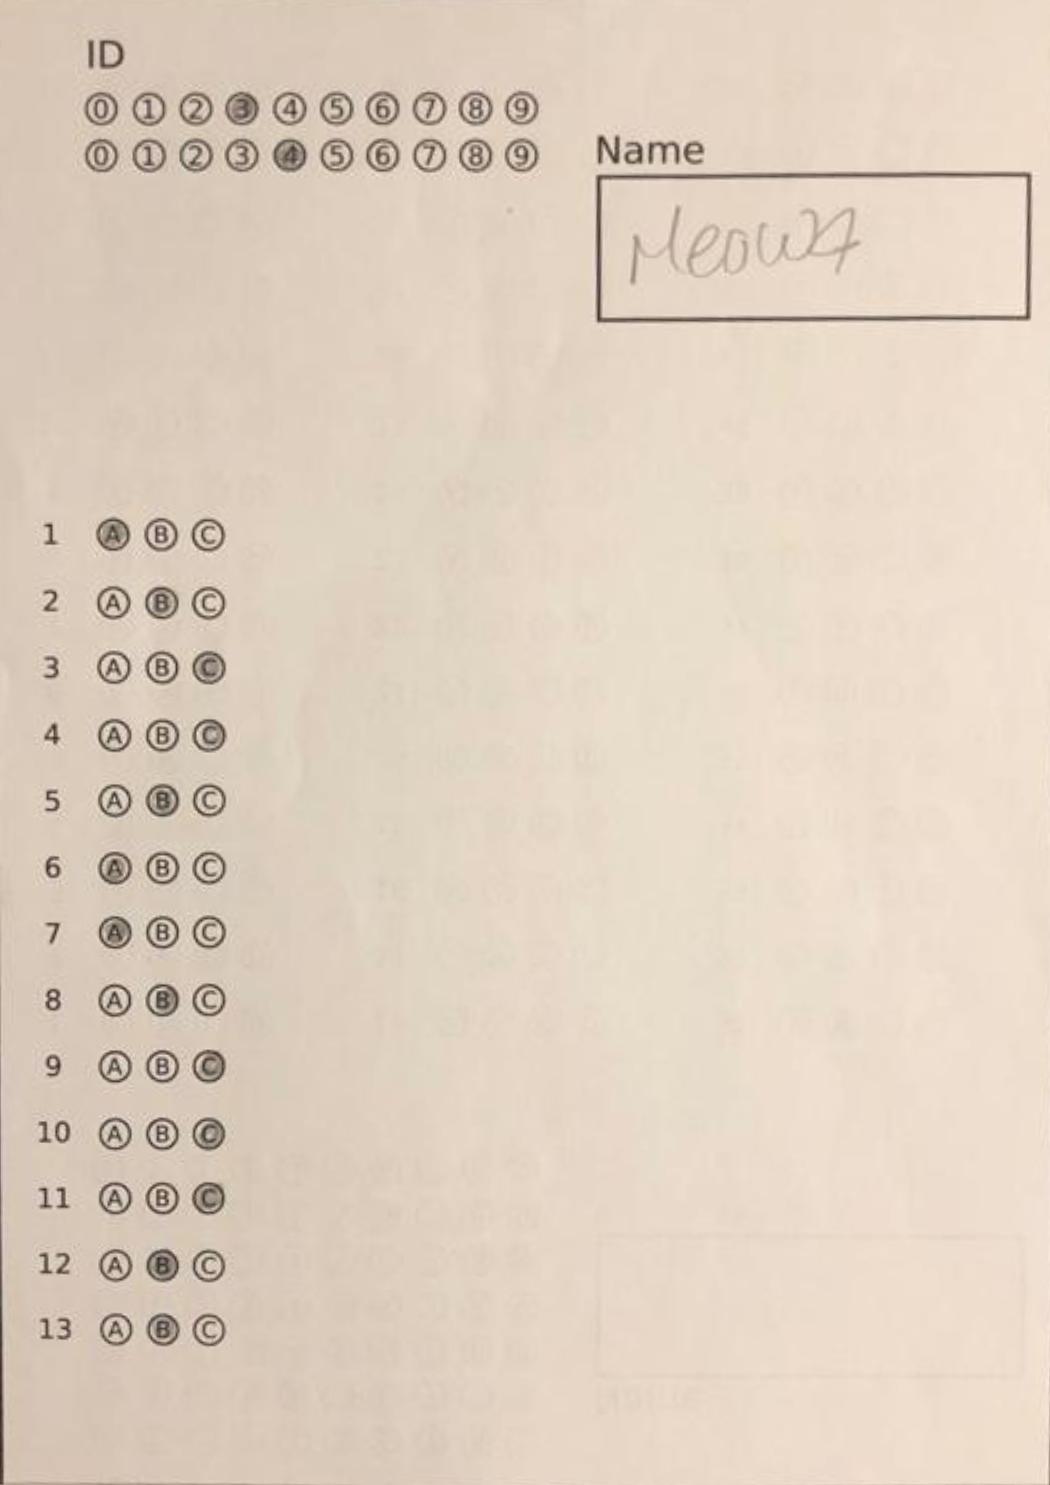 ID
0 1 2 3 4 5 6 7 8 9
0 1 2 3 4 5 6 7 8 9
Name
1 A B C
2 A B C
3 A B C
4 A B C
5 A B C
6 A B C
7 A B C
8 A B C
9 A B C
10 A B C
11 A B C
12 A B C
13 A B C